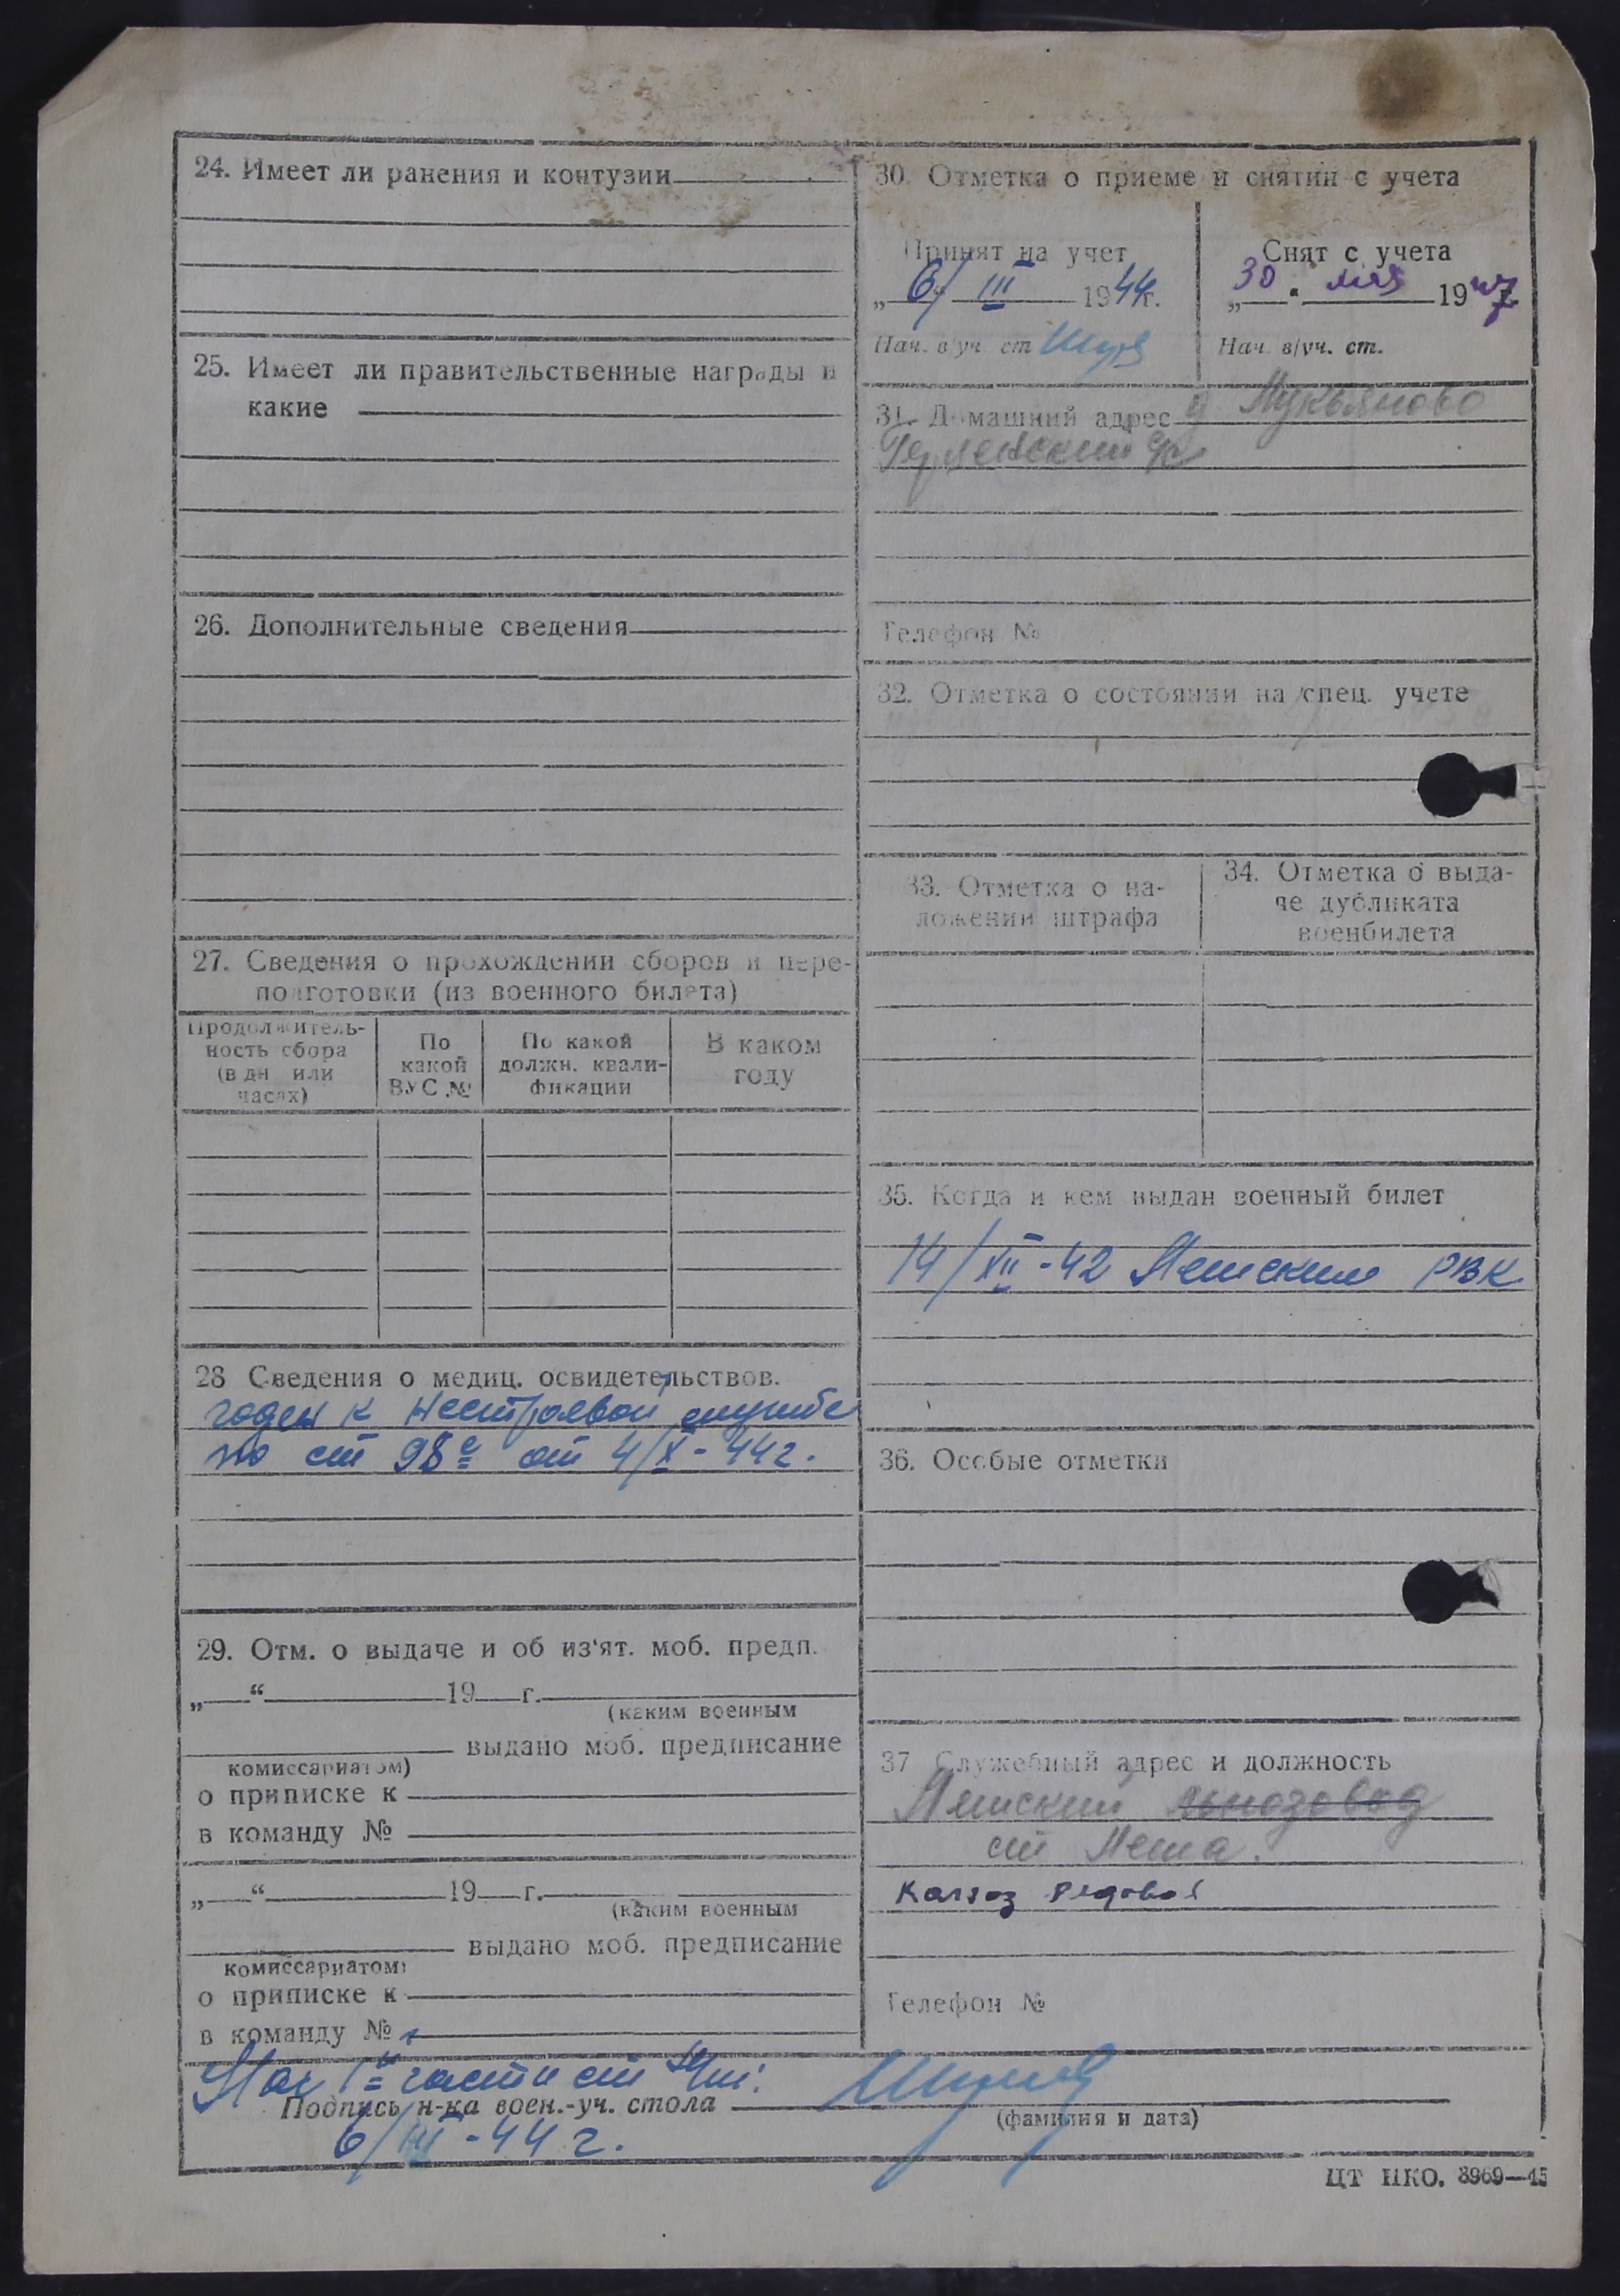 24. Имеет ли ранения и контузии
25. Имеет ли правительственные награды и
какие
26. Дополнительные сведения
27. Сведения о прохождении сборов и пере-
подготовки (из военного билета)
Продолжитель-
ность сбора
(в дн или
часах)
По
какой
ВУС №
По какой
должн. квали-
фикации
В каком
году
28 Сведения о медиц. освидетельствов.
годен к нестроевой службе
по ст 98 е от 4/X-44г.
29. Отм. о выдаче и об из'ят. моб. предп.
„ “ 19 г.
(каким военным
выдано моб. предписание
комиссариатом)
о приписке к
в команду №
„ “ 19 г.
(каким военным
выдано моб. предписание
комиссариатом)
о приписке к
в команду №
30. Отметка о приеме и снятии с учета
Принят на учет
„6/ III 1944г.
Нач. в/уч ст
Снят с учета
„30 “ мая 1947
Нач. в/уч. ст.
31. Домашний адрес д Лукьяново
Телефон №
32. Отметка о состоянии на спец. учете
33. Отметка о на-
ложении штрафа
34. Отметка о выда-
че дубликата
военбилета
35. Когда и кем выдан военный билет
14/XII-42 Лешским РВК
36. Особые отметки
37 Служебный адрес и должность
Лешский льнозавод
ст Леша.
Колхоз рядовой
Телефон №
Нач 1й части ст
Подпись н-ка воен.-уч. стола
(фамилия и дата)
6/III-44 г.
ЦТ НКО. 8969—45